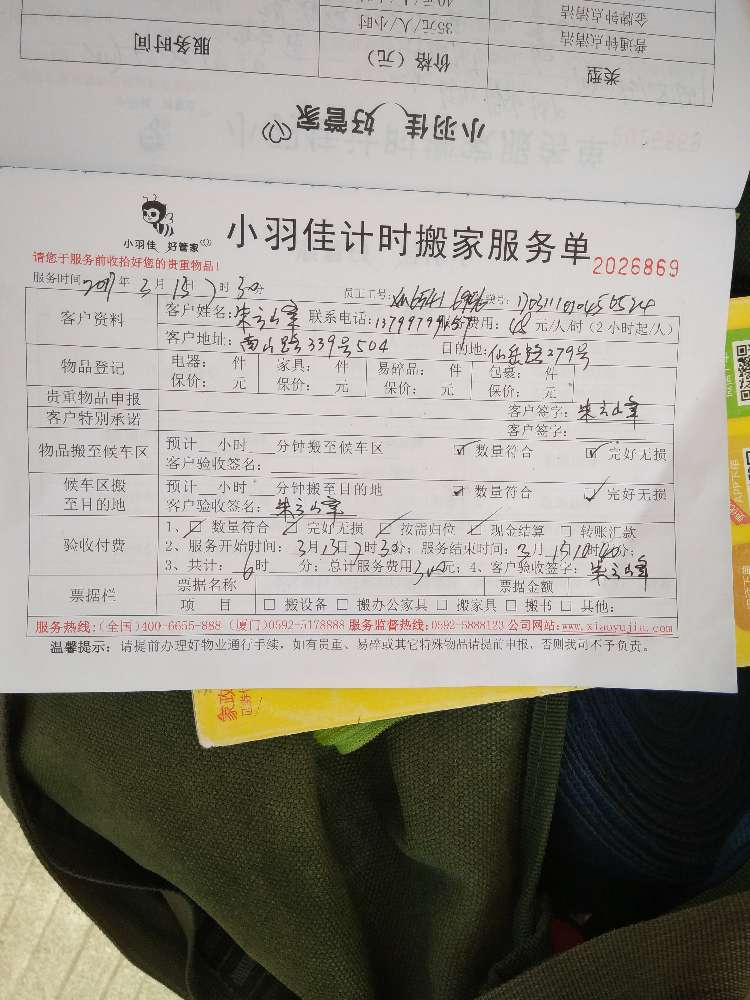 40元/人/小时
金牌钟点清洁
35元/人/小时
普通钟点清洁
服务时间
价格（元）
类型
小羽佳 好管家
小羽佳 好管家
小羽佳计时搬家服务单
2026869
请您于服务前收拾好您的贵重物品！
服务时间 2017年3月15日7时30分 员工工号:
客户资料 客户姓名: 联系电话: 费用: 48元/人/时（2小时起/人）
客户地址: 南山路339号504 目的地: 仙岳路279号
物品登记 电器: 件 家具: 件 易碎品: 件 包裹: 件
保价: 元 保价: 元 保价: 元 保价: 元
贵重物品申报 客户签字:
客户特别承诺 客户签字:
物品搬至候车区 预计__小时__分钟搬至候车区 ☑ 数量符合 ☑ 完好无损
客户验收签名:
候车区搬至目的地 预计__小时__分钟搬至目的地 ☑ 数量符合 ☑ 完好无损
客户验收签名:
验收付费 1、☑ 数量符合 ☑ 完好无损 ☑ 按需归位 ☑ 现金结算 □ 转账汇款
2、服务开始时间: 3月15日7时30分; 服务结束时间: 3月15日10时40分;
3、共计: 6时__分; 总计服务费用300元; 4、客户验收签字:
票据栏 票据名称 票据金额
项 目 □ 搬设备 □ 搬办公家具 □ 搬家具 □ 搬书 □ 其他:
服务热线:(全国)400-6655-888 (厦门)0592-5178888 服务监督热线:0592-5888123 公司网站:www.xiaoyujia.com
温馨提示: 请提前办理好物业通行手续，如有贵重、易碎或其它特殊物品请提前申报，否则我司不予负责。